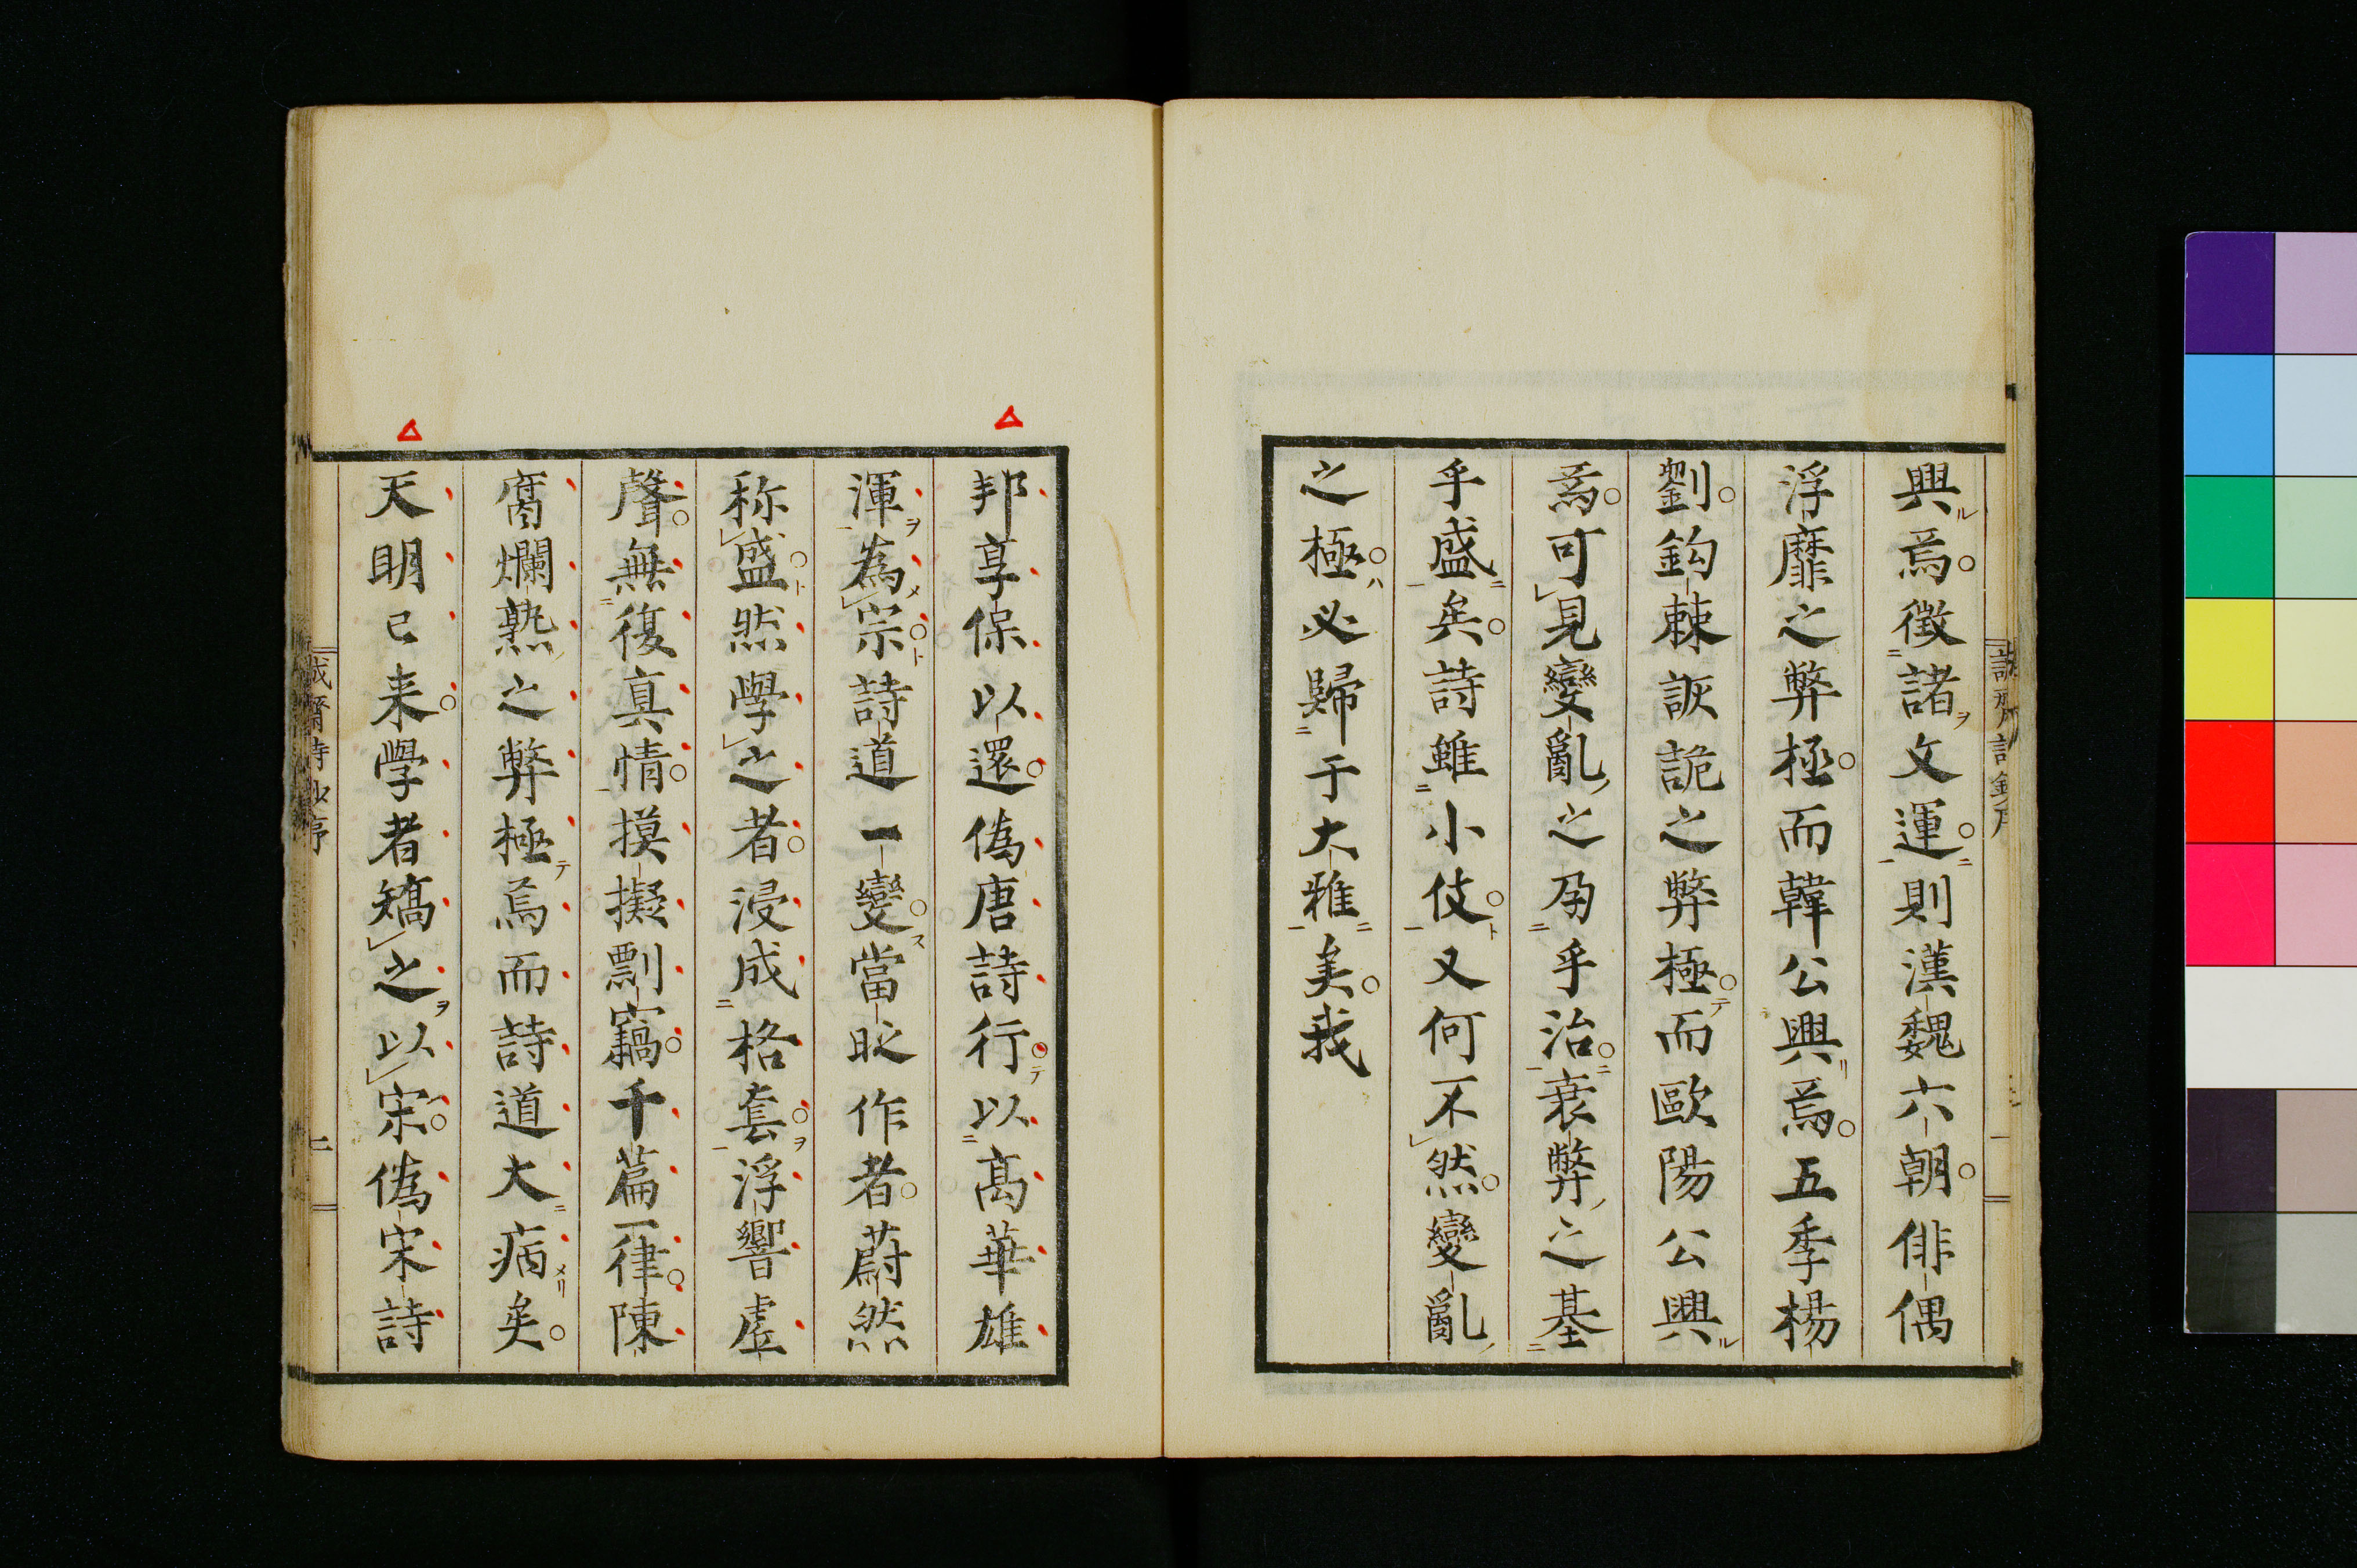 興焉徵諸文運則漢魏六朝俳偶
浮靡之弊極而韓公興焉五季楊
劉鈎棘詼詭之弊極而歐陽公興
焉可見變亂之孕乎治衰弊之基
乎盛矣詩雖小伎又何不然變亂
之極必歸于大雅矣我
邦享保以還偽唐詩行以高華雄
渾為宗詩道一變當時作者蔚然
称盛然學之者浸成格套浮響虛
聲無復真情摸擬剽竊千篇一律陳
腐爛熟之弊極焉而詩道大病矣
天明已来學者矯之以宋偽宋詩
誠齋詩鈔序
二